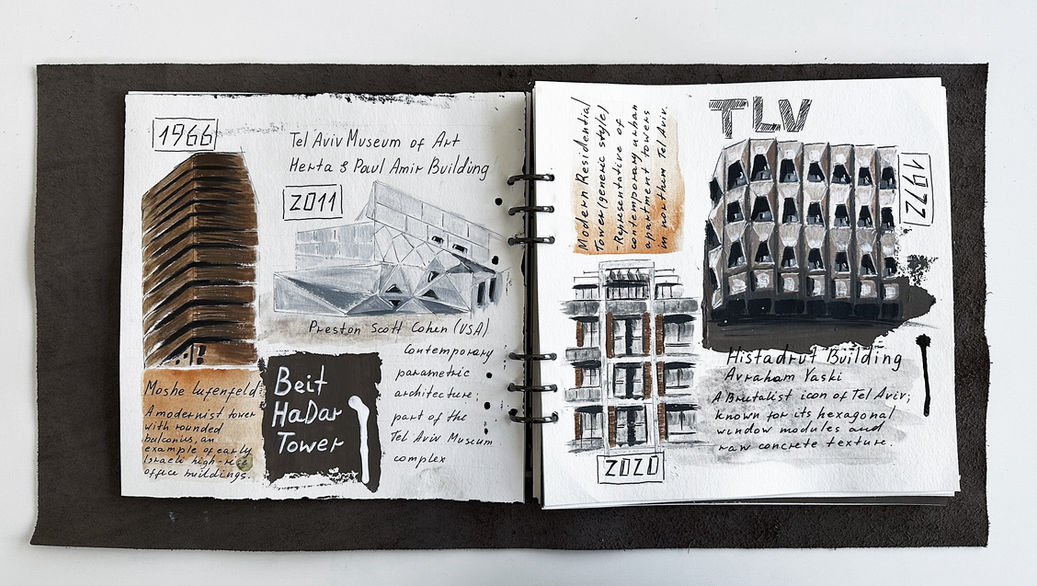 1966
Tel Aviv Museum of Art
Herta & Paul Amir Building
2011
Preston Scott Cohen (USA)
contemporary
parametric
architecture;
part of the
Tel Aviv Museum
complex
Moshe Lufenfeld
A modernist tower
with rounded
balconies, an
example of early
Israeli high-rise
office buildings.
Beit
HaDar
Tower
Modern Residential
Tower (generic style)
-Representative of
contemporary urban
apartment towers
in northern Tel Aviv.
TLV
1972
2020
Histadrut Building
Avraham Yaski
A Brutalist icon of Tel Aviv;
known for its hexagonal
window modules and
raw concrete texture.